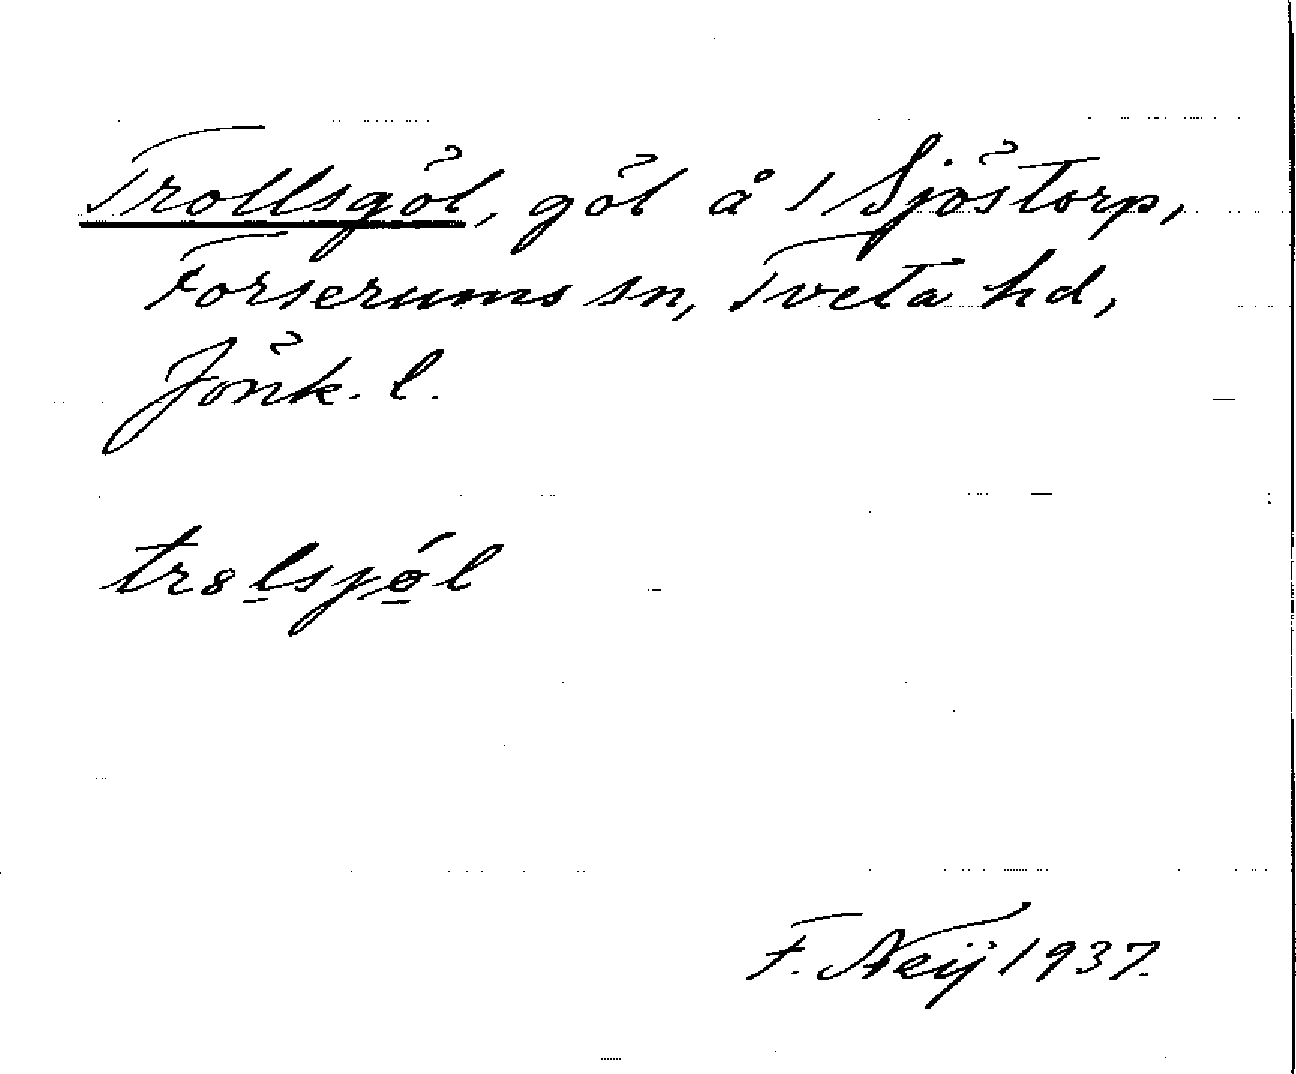 Trollsgöl, göl å 1 Sjöstorp,
Forserums sn, Tveta hd,
Jönk. l.
tr8l̲sjǿ̲l
F. Neij 1937.